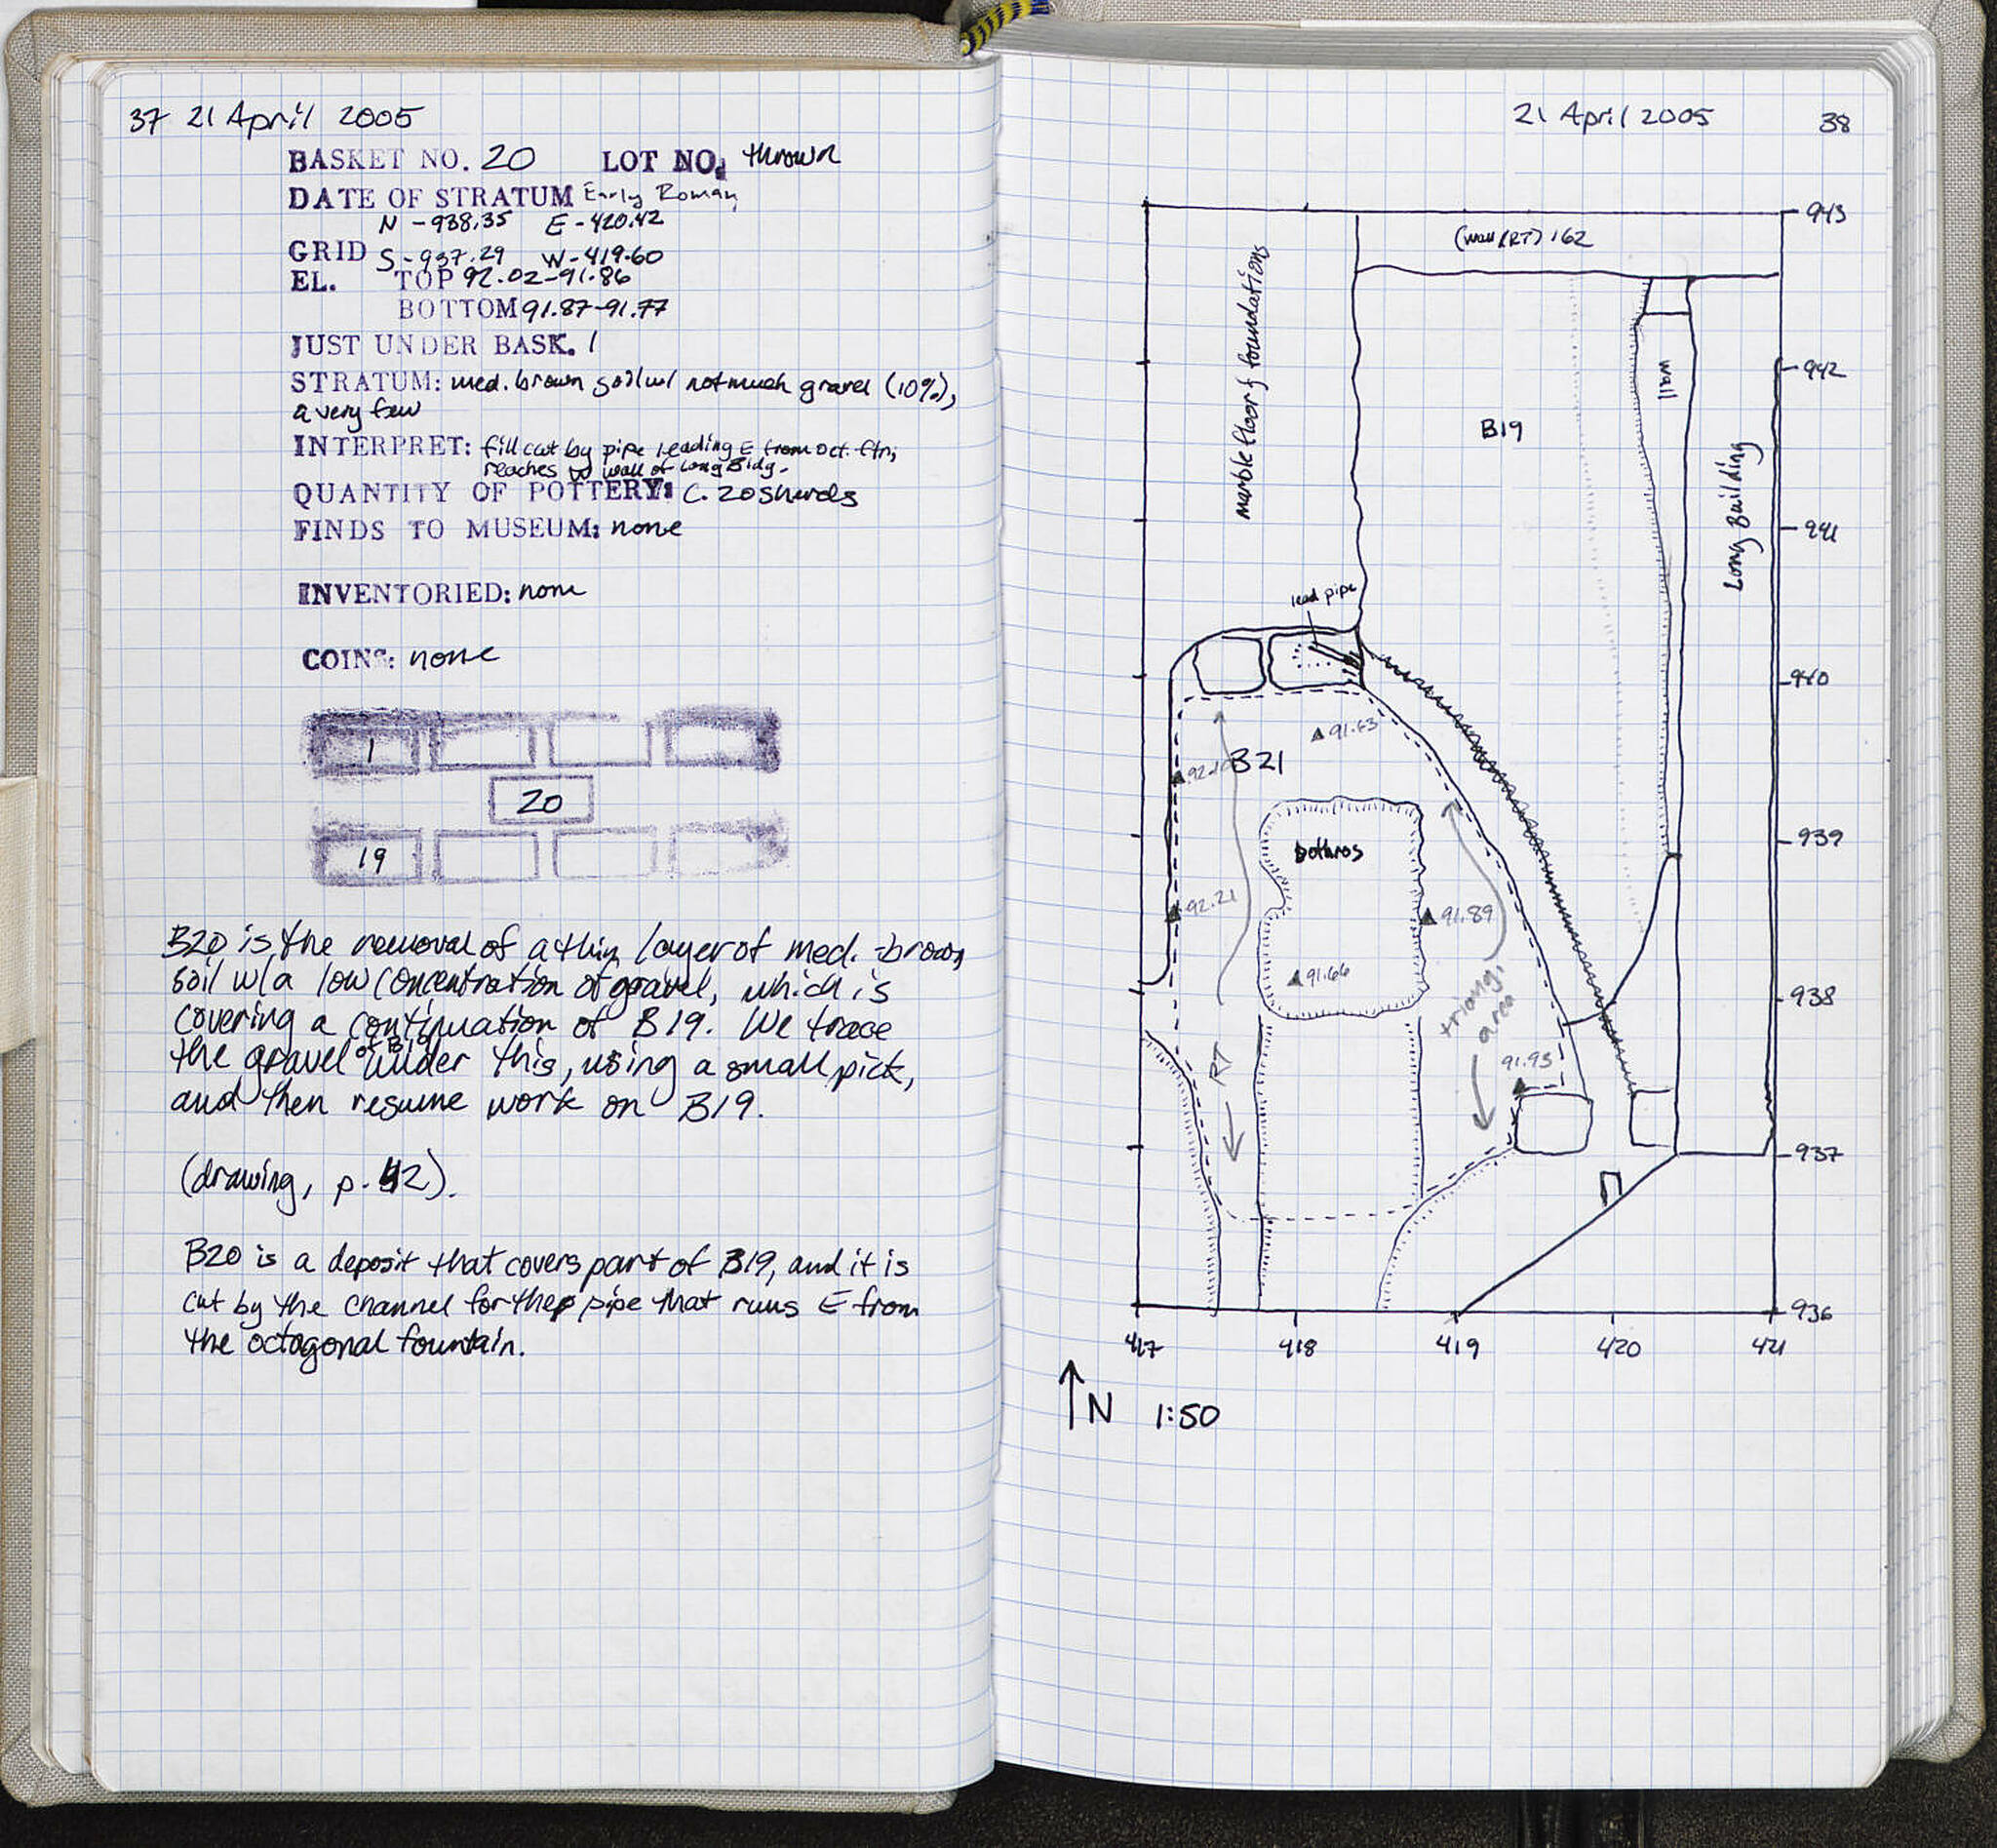 37 21 April 2005
BASKET NO. 20 LOT NO. thrown
DATE OF STRATUM Early Roman
N - 938.35 E - 420.42
GRID S - 937.29 W - 419.60
EL. TOP 92.02-91.86
BOTTOM 91.87-91.77
JUST UNDER BASK. 1
STRATUM: med. brown soil w/ not much gravel (10%),
a very few
INTERPRET: fill cut by pipe leading E from oct. ftn;
reaches W wall of Long Bldg.
QUANTITY OF POTTERY: C. 20 sherds
FINDS TO MUSEUM: none
INVENTORIED: none
COINS: none
1
20
19
B20 is the removal of a thin layer of med.-brown
soil w/a low concentration of gravel, which is
covering a continuation of B19. We trace
the gravel of B19 under this, using a small pick,
and then resume work on B19.
(drawing, p. 42).
B20 is a deposit that covers part of B19, and it is
cut by the channel for the pipe that runs E from
the octagonal fountain.
21 April 2005 38
943
(wall (RT) 162
marble floor & foundations
942
wall
B19
941
Long Building
lead pipe
940
91.63
B21
939
bothros
92.21
91.89
91.66
938
triang.
area
RT
91.93
937
936
417 418 419 420 421
N 1:50